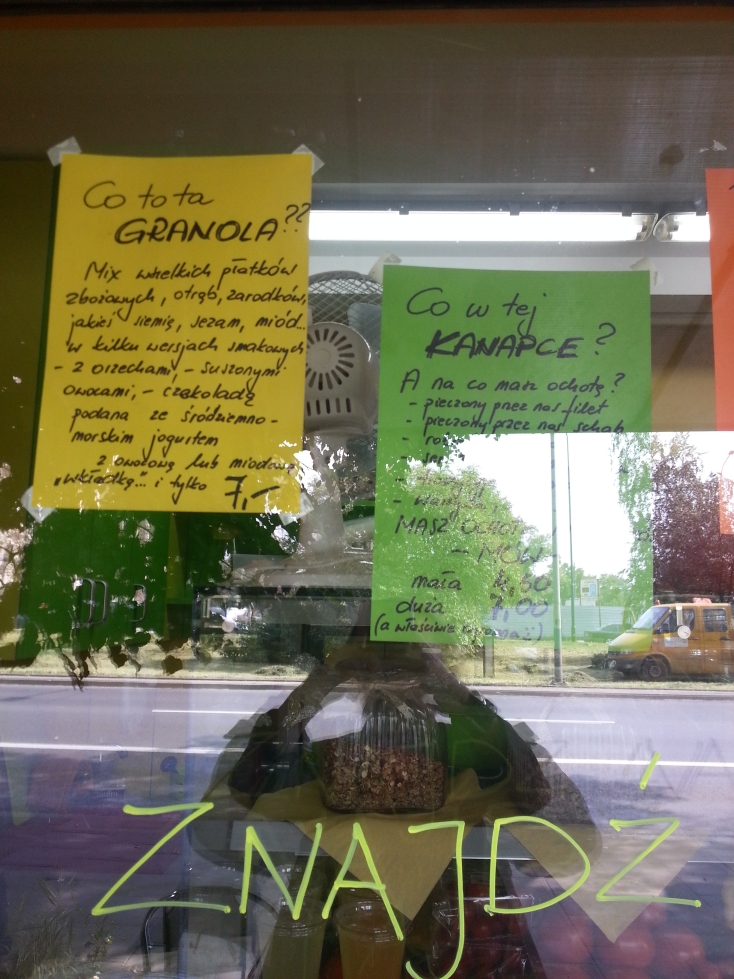 Co to ta
GRANOLA??
Mix wszelkich płatków
zbożowych, otrąb, zarodków,
jakieś siemię, sezam, miód...
w kilku wersjach smakowych
- z orzechami, - suszonymi
owocami, - czekoladą
podana ze śródziemno-
morskim jogurtem
z owocową lub miodową
"wkładką..." i tylko 7,-
Co w tej
KANAPCE?
A na co masz ochotę?
- pieczony przez nas filet
- pieczony przez nas schab
MASZ
- MÓW -
mała 4,50
duża 7,00
(a właściwie
ZNAJDŹ